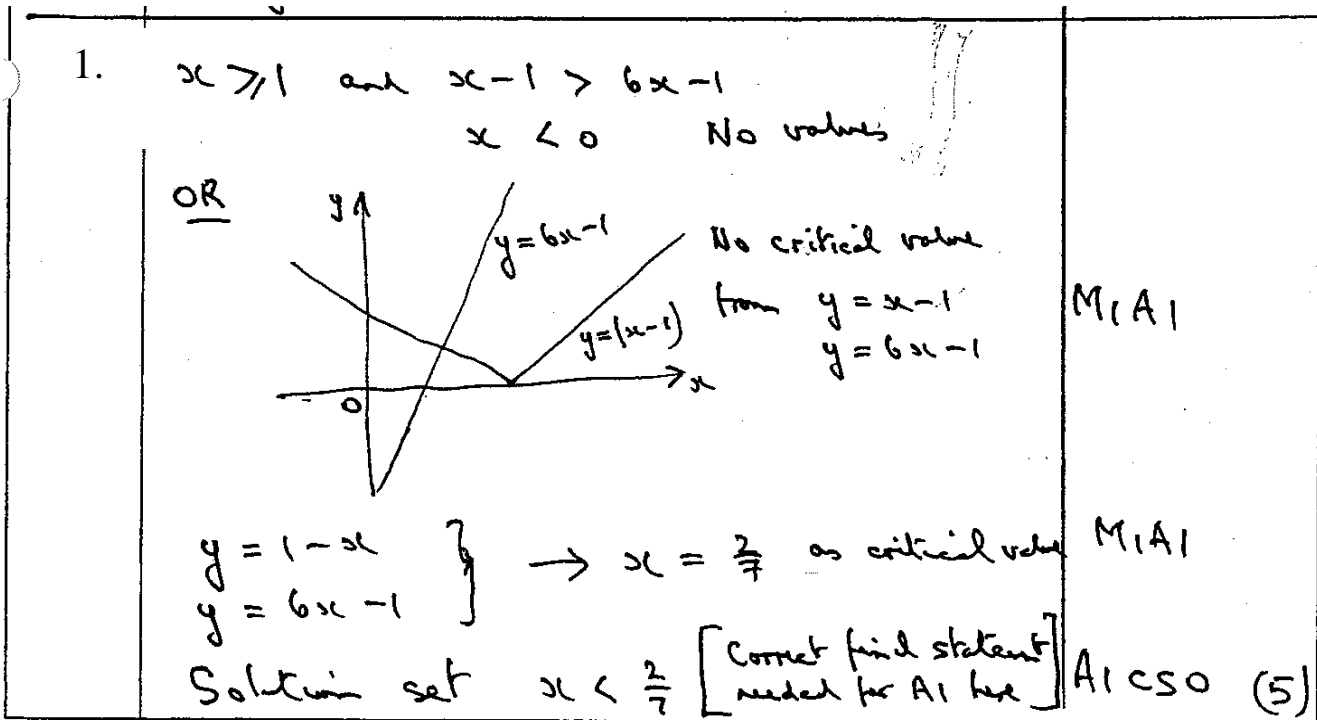 1. x ⩾ 1 and x - 1 > 6x - 1
x < 0 No values
OR
y
y = 6x - 1
No critical value
from y = x - 1
y = 6x - 1
M1 A1
y = |x - 1|
x
0
y = 1 - x
y = 6x - 1
} → x = 2/7 as critical value M1 A1
Solution set x < 2/7 [Correct final statement needed for A1 here] A1 cso (5)